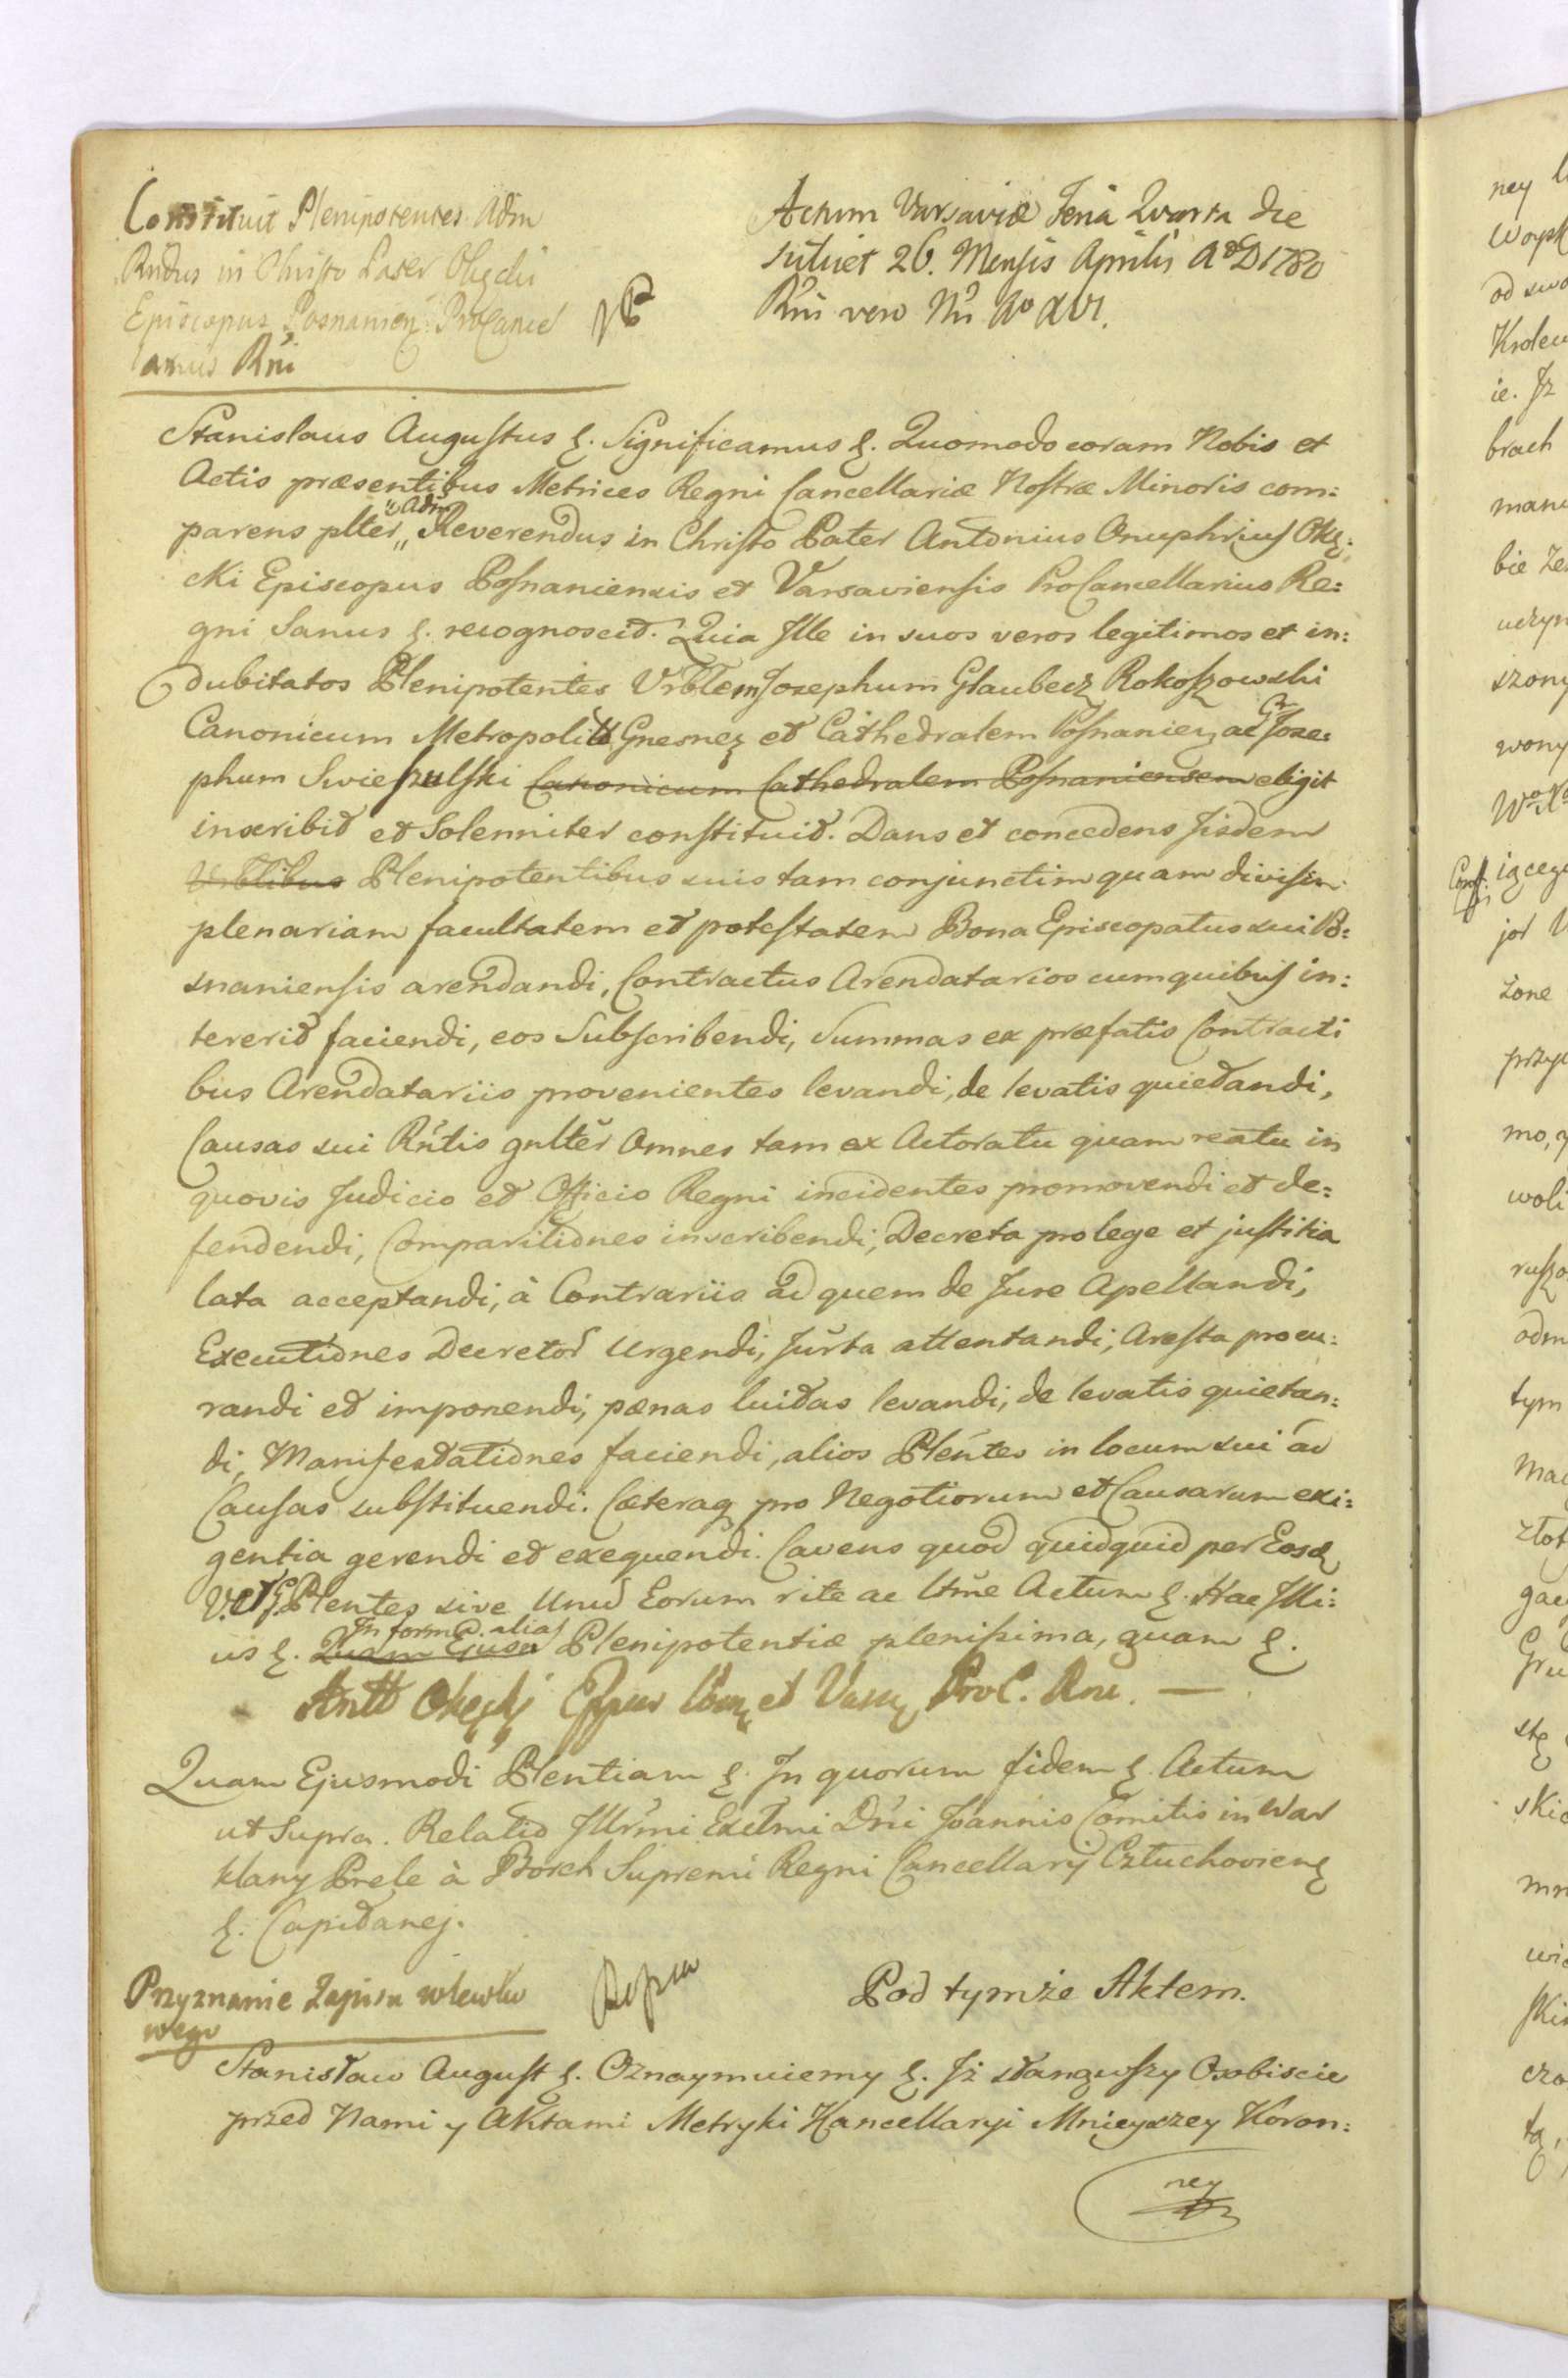 Constituit Plenipotentes Adm
Rndus in Christo Pater Okęcki
Episcopus Posnanien: ProCancel
larius Rni
Actum Varsaviæ Feria Quarta die
scilicet 26. Mensis Aprilis A° D 1780
Rni vero Nri A° XVI.
Stanislaus Augustus &. Significamus &. Quomodo coram Nobis et
Actis præsentibus Metrices Regni Cancellariæ Nostræ Minoris com:
parens plter Adm Reverendus in Christo Pater Antonius Onuphrius Okę:
cki Episcopus Posnaniensis et Varsaviensis ProCancellarius Re:
gni Sanus &. recognoscit. Quia Ille in suos veros legitimos et in:
dubitatos Plenipotentes Vrblem Josephum Glaubecz Rokoszowski
Canonicum Metropolit Gnesnen et Cathedralem Posnanien ac Gr Jose:
phum Swieszulski Canonicum Cathedralem Posnaniensem eligit
inscribit et Solenniter constituit. Dans et concedens Iisdem
Vrblibus Plenipotentibus suis tam conjunctim quam divisim
plenariam facultatem et potestatem Bona Episcopatus sui Po:
snaniensis arendandi, Contractus Arendatarios cum quibus in:
tererit faciendi, eos Subscribendi, Summas ex præfatis Contracti
bus Arendatariis provenientes levandi, de levatis quietandi,
Causas sui Rntis gnlter Omnes tam ex Actoratu quam reatu in
quovis Judicio et Officio Regni incidentes promovendi et de:
fendendi, Comparitiones inscribendi, Decreta pro lege et justitia
lata acceptandi, à Contrariis ad quem de Jure Apellandi,
Executiones Decretor Urgendi, Jurta attentandi, Aresta procu:
randi et imponendi, pænas luitas levandi, de levatis quietan:
di, Manifestationes faciendi, alios Plentes in locum sui ad
Causas substituendi. Cæteraq pro Negotiorum et Causarum exi:
gentia gerendi et exequendi. Cavens quod quidquid per Eosd
V. et G. Plentes sive Unum Eorum rite ac ltme Actum &. Hac Illi:
us &. Quam Ejusd In forma alias Plenipotentiæ plenissima, quam &.
Antt Okęcki Eppus et Vars ProC. Rni. —
Quam Ejusmodi Plentiam &. In quorum fidem &. Actum
ut Supra. Relatio Illrmi Exclmi Dni Joannis Comitis in War
klany Prele à Borch Supremi Regni Cancellarij Cztuchovien
&. Capitanej.
Przyznanie Zapisu wlewko
wego
Pod tymże Aktem.
Stanisław August &. Oznaymuiemy &. Iż stanąwszy Osobiscie
przed Nami y Aktami Metryki Kancellaryi Mnieyszey Koron:
ney